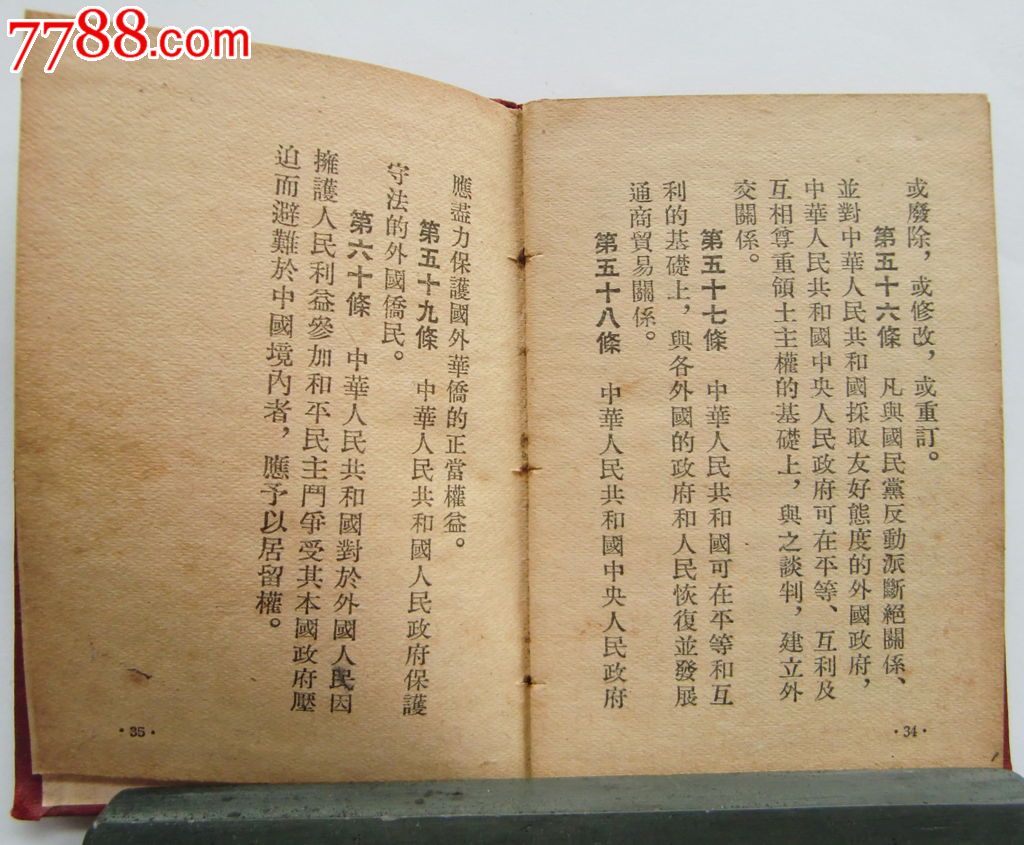 7788.com
或廢除，或修改，或重訂。
第五十六條　凡與國民黨反動派斷絕關係、
並對中華人民共和國採取友好態度的外國政府，
中華人民共和國中央人民政府可在平等、互利及
互相尊重領土主權的基礎上，與之談判，建立外
交關係。
第五十七條　中華人民共和國可在平等和互
利的基礎上，與各外國的政府和人民恢復並發展
通商貿易關係。
第五十八條　中華人民共和國中央人民政府
·34·
應盡力保護國外華僑的正當權益。
第五十九條　中華人民共和國人民政府保護
守法的外國僑民。
第六十條　中華人民共和國對於外國人民因
擁護人民利益參加和平民主鬥爭受其本國政府壓
迫而避難於中國境內者，應予以居留權。
·35·